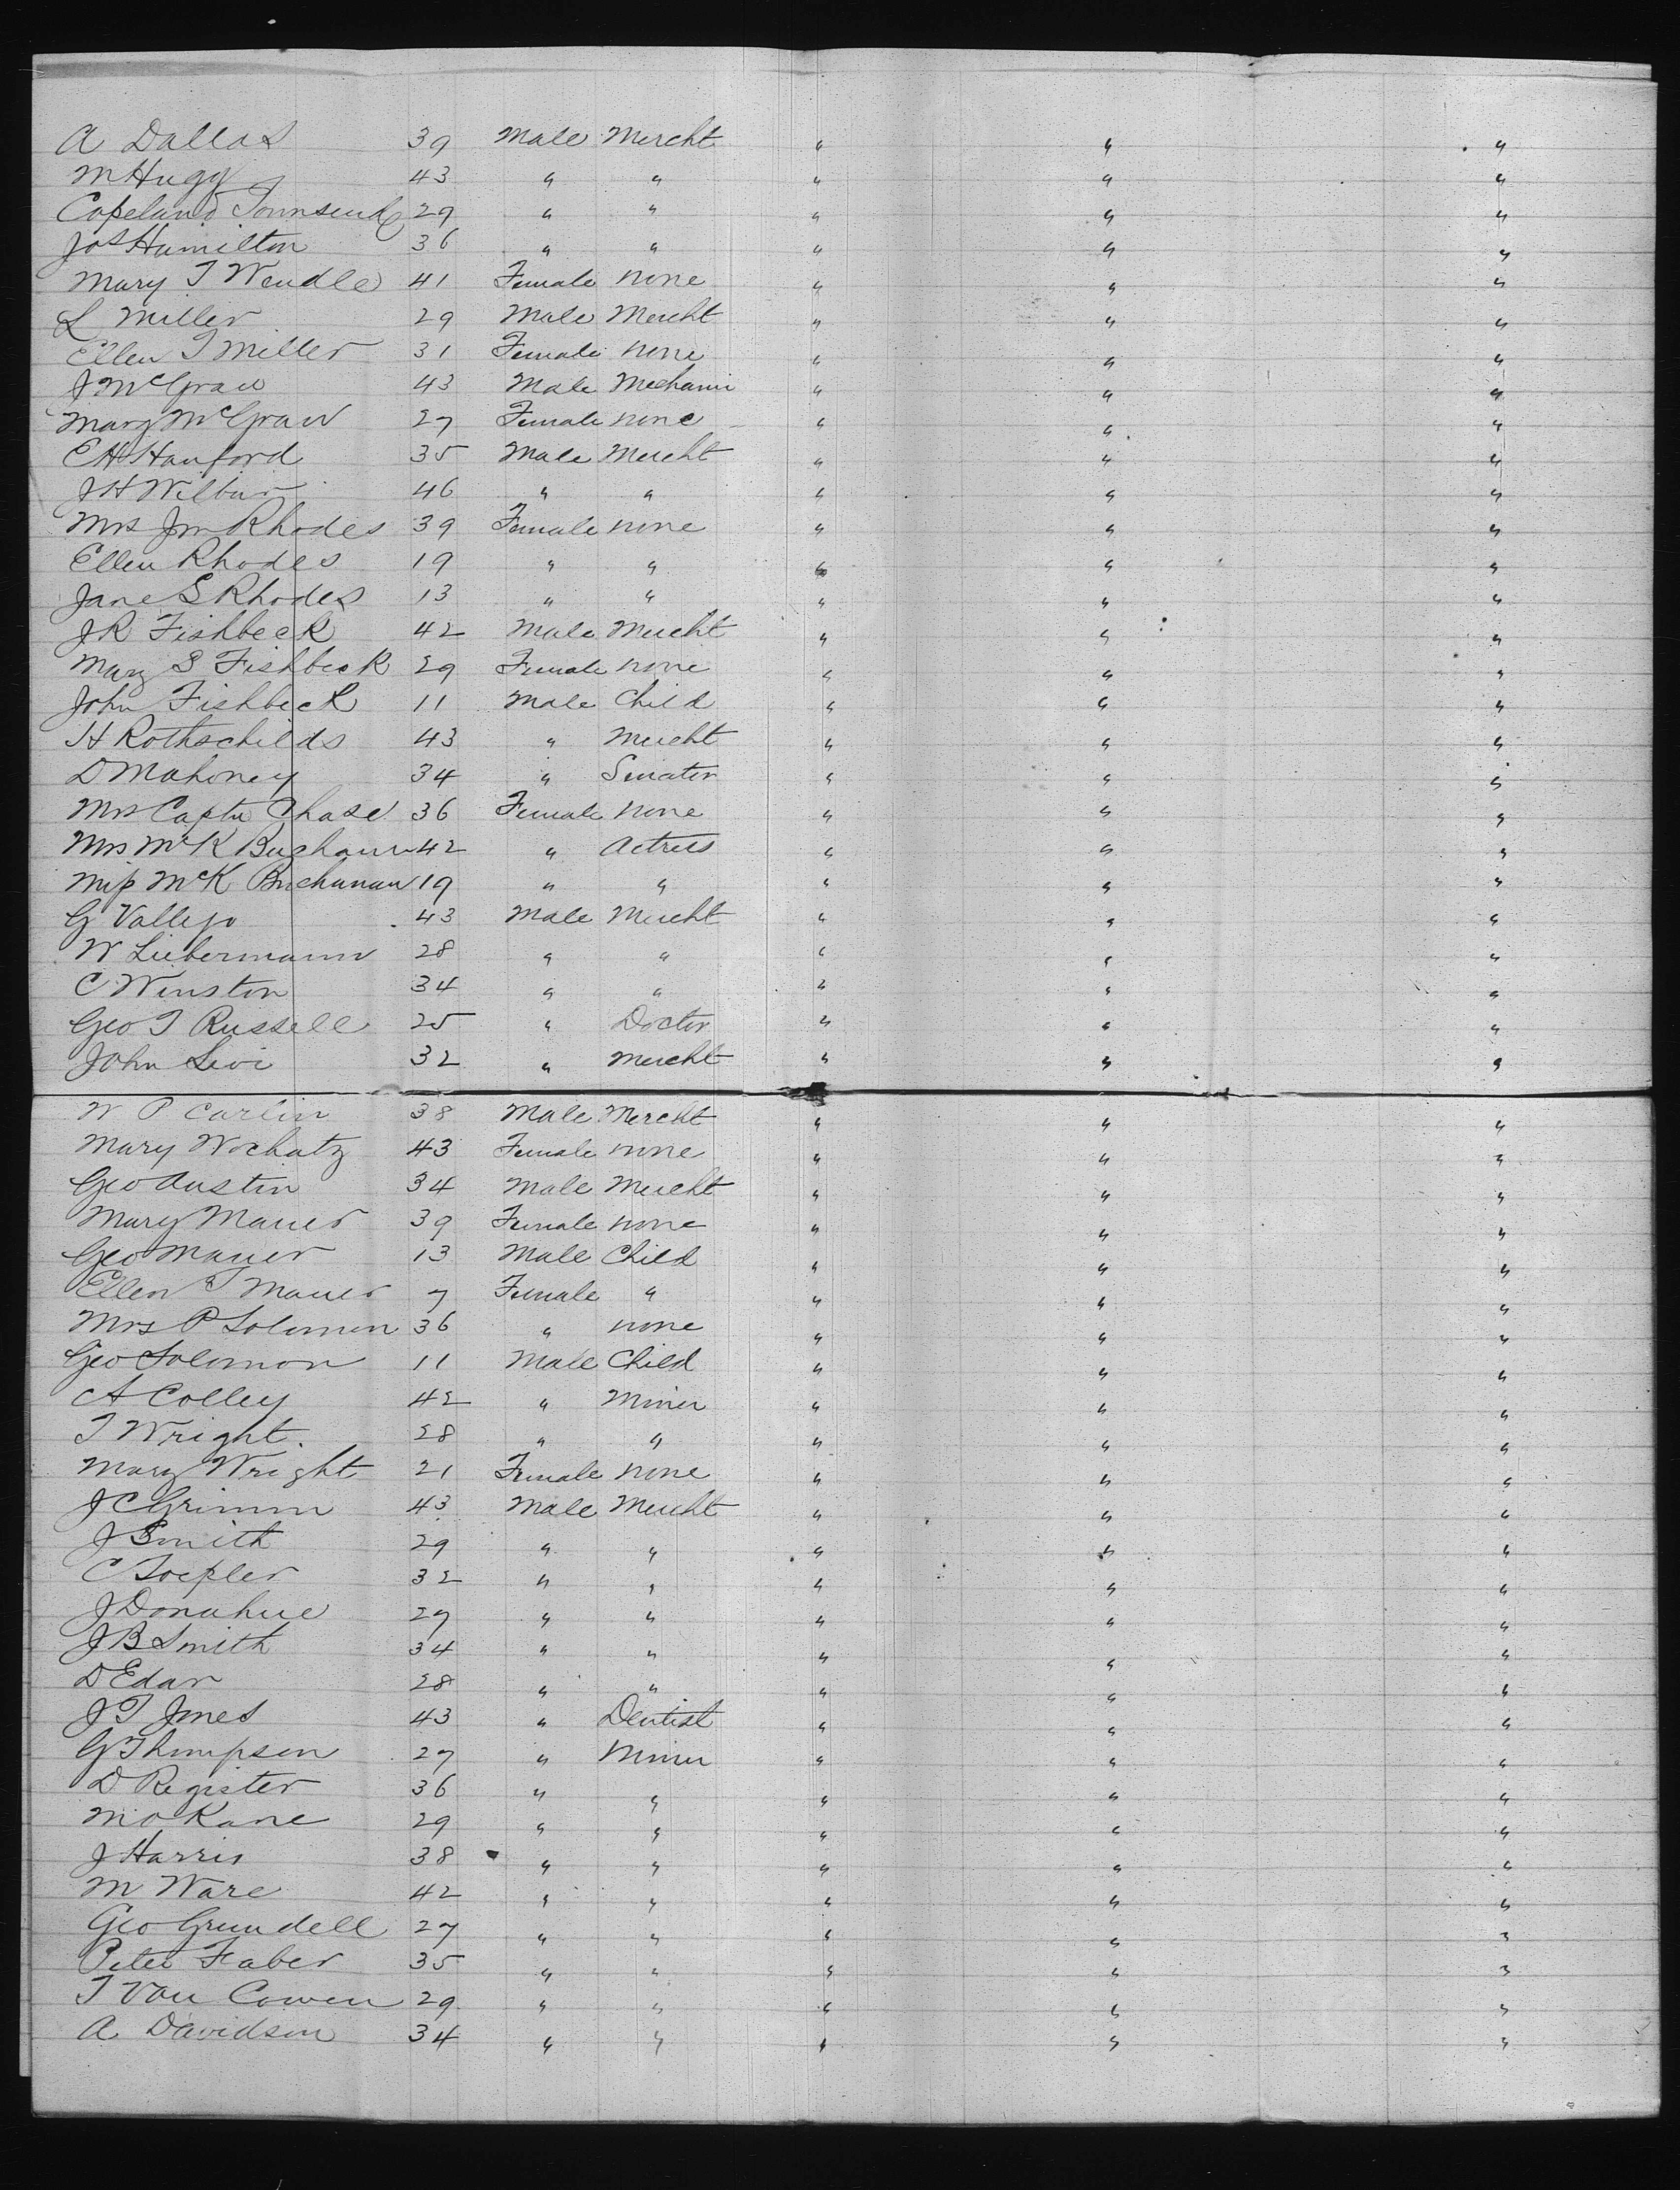 A Dallas 39 Male Mercht " " "
M Hugg 43 " " " " "
Copeland Townsend 29 " " " " "
Jos Hamilton 36 " " " " "
Mary T Wendle 41 Female none " " "
L Miller 29 Male Mercht " " "
Ellen T Miller 31 Female none " " "
J McGraw 43 Male Mechanic " " "
Mary McGraw 27 Female none " " "
E H Hanford 35 Male Mercht " " "
J H Wilbur 46 " " " " "
Mrs Jm Rhodes 39 Female none " " "
Ellen Rhodes 19 " " " " "
Jane S Rhodes 13 " " " " "
J R Fishbeck 42 Male Mercht " " "
Mary S Fishbeck 29 Female none " " "
John Fishbeck 11 Male Child " " "
H Rothschilds 43 " Mercht " " "
D Mahoney 34 " Senator " " "
Mrs Captn Chase 36 Female none " " "
Mrs McK Buchanan 42 " Actress " " "
Miss McK Buchanan 19 " " " " "
G Vallejo 43 Male Mercht " " "
W Liebermann 28 " " " " "
C Winston 34 " " " " "
Geo T Russell 25 " Doctor " " "
John Levi 32 " Mercht " " "
W P Carlin 38 Male Mercht " " "
Mary Wochatz 43 Female none " " "
Geo Austin 34 Male Mercht " " "
Mary Mauer 39 Female none " " "
Geo Mauer 13 Male Child " " "
Ellen T Mauer 7 Female " " " "
Mrs P Solomon 36 " none " " "
Geo Solomon 11 Male Child " " "
A Colley 42 " Miner " " "
T Wright. 28 " " " " "
Mary Wright 21 Female none " " "
J C Grimm 43 Male Mercht " " "
J Smith 29 " " " " "
C 32 " " " " "
J Donahue 27 " " " " "
J B Smith 34 " " " " "
D Edar 28 " " " " "
J T Jones 43 " Dentist " " "
G Thompson 27 " Miner " " "
D Register 36 " " " " "
M O Kane 29 " " " " "
J Harris 38 " " " " "
M Ware 42 " " " " "
Geo Grundell 27 " " " " "
Peter Faber 35 " " " " "
T Van Cowen 29 " " " " "
A Davidson 34 " " " " "